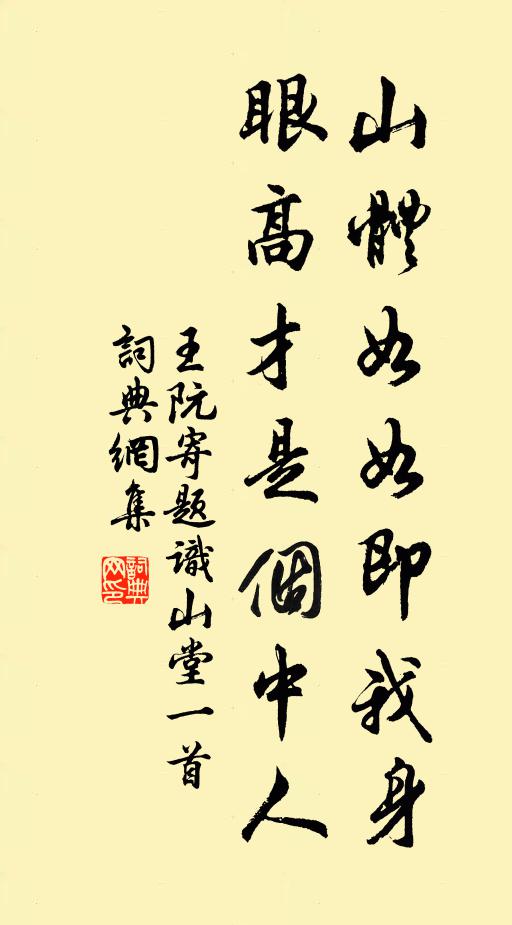 山體如如即我身
眼高才是個中人
王阮寄題識山堂一首
詞典網集
詞典网印